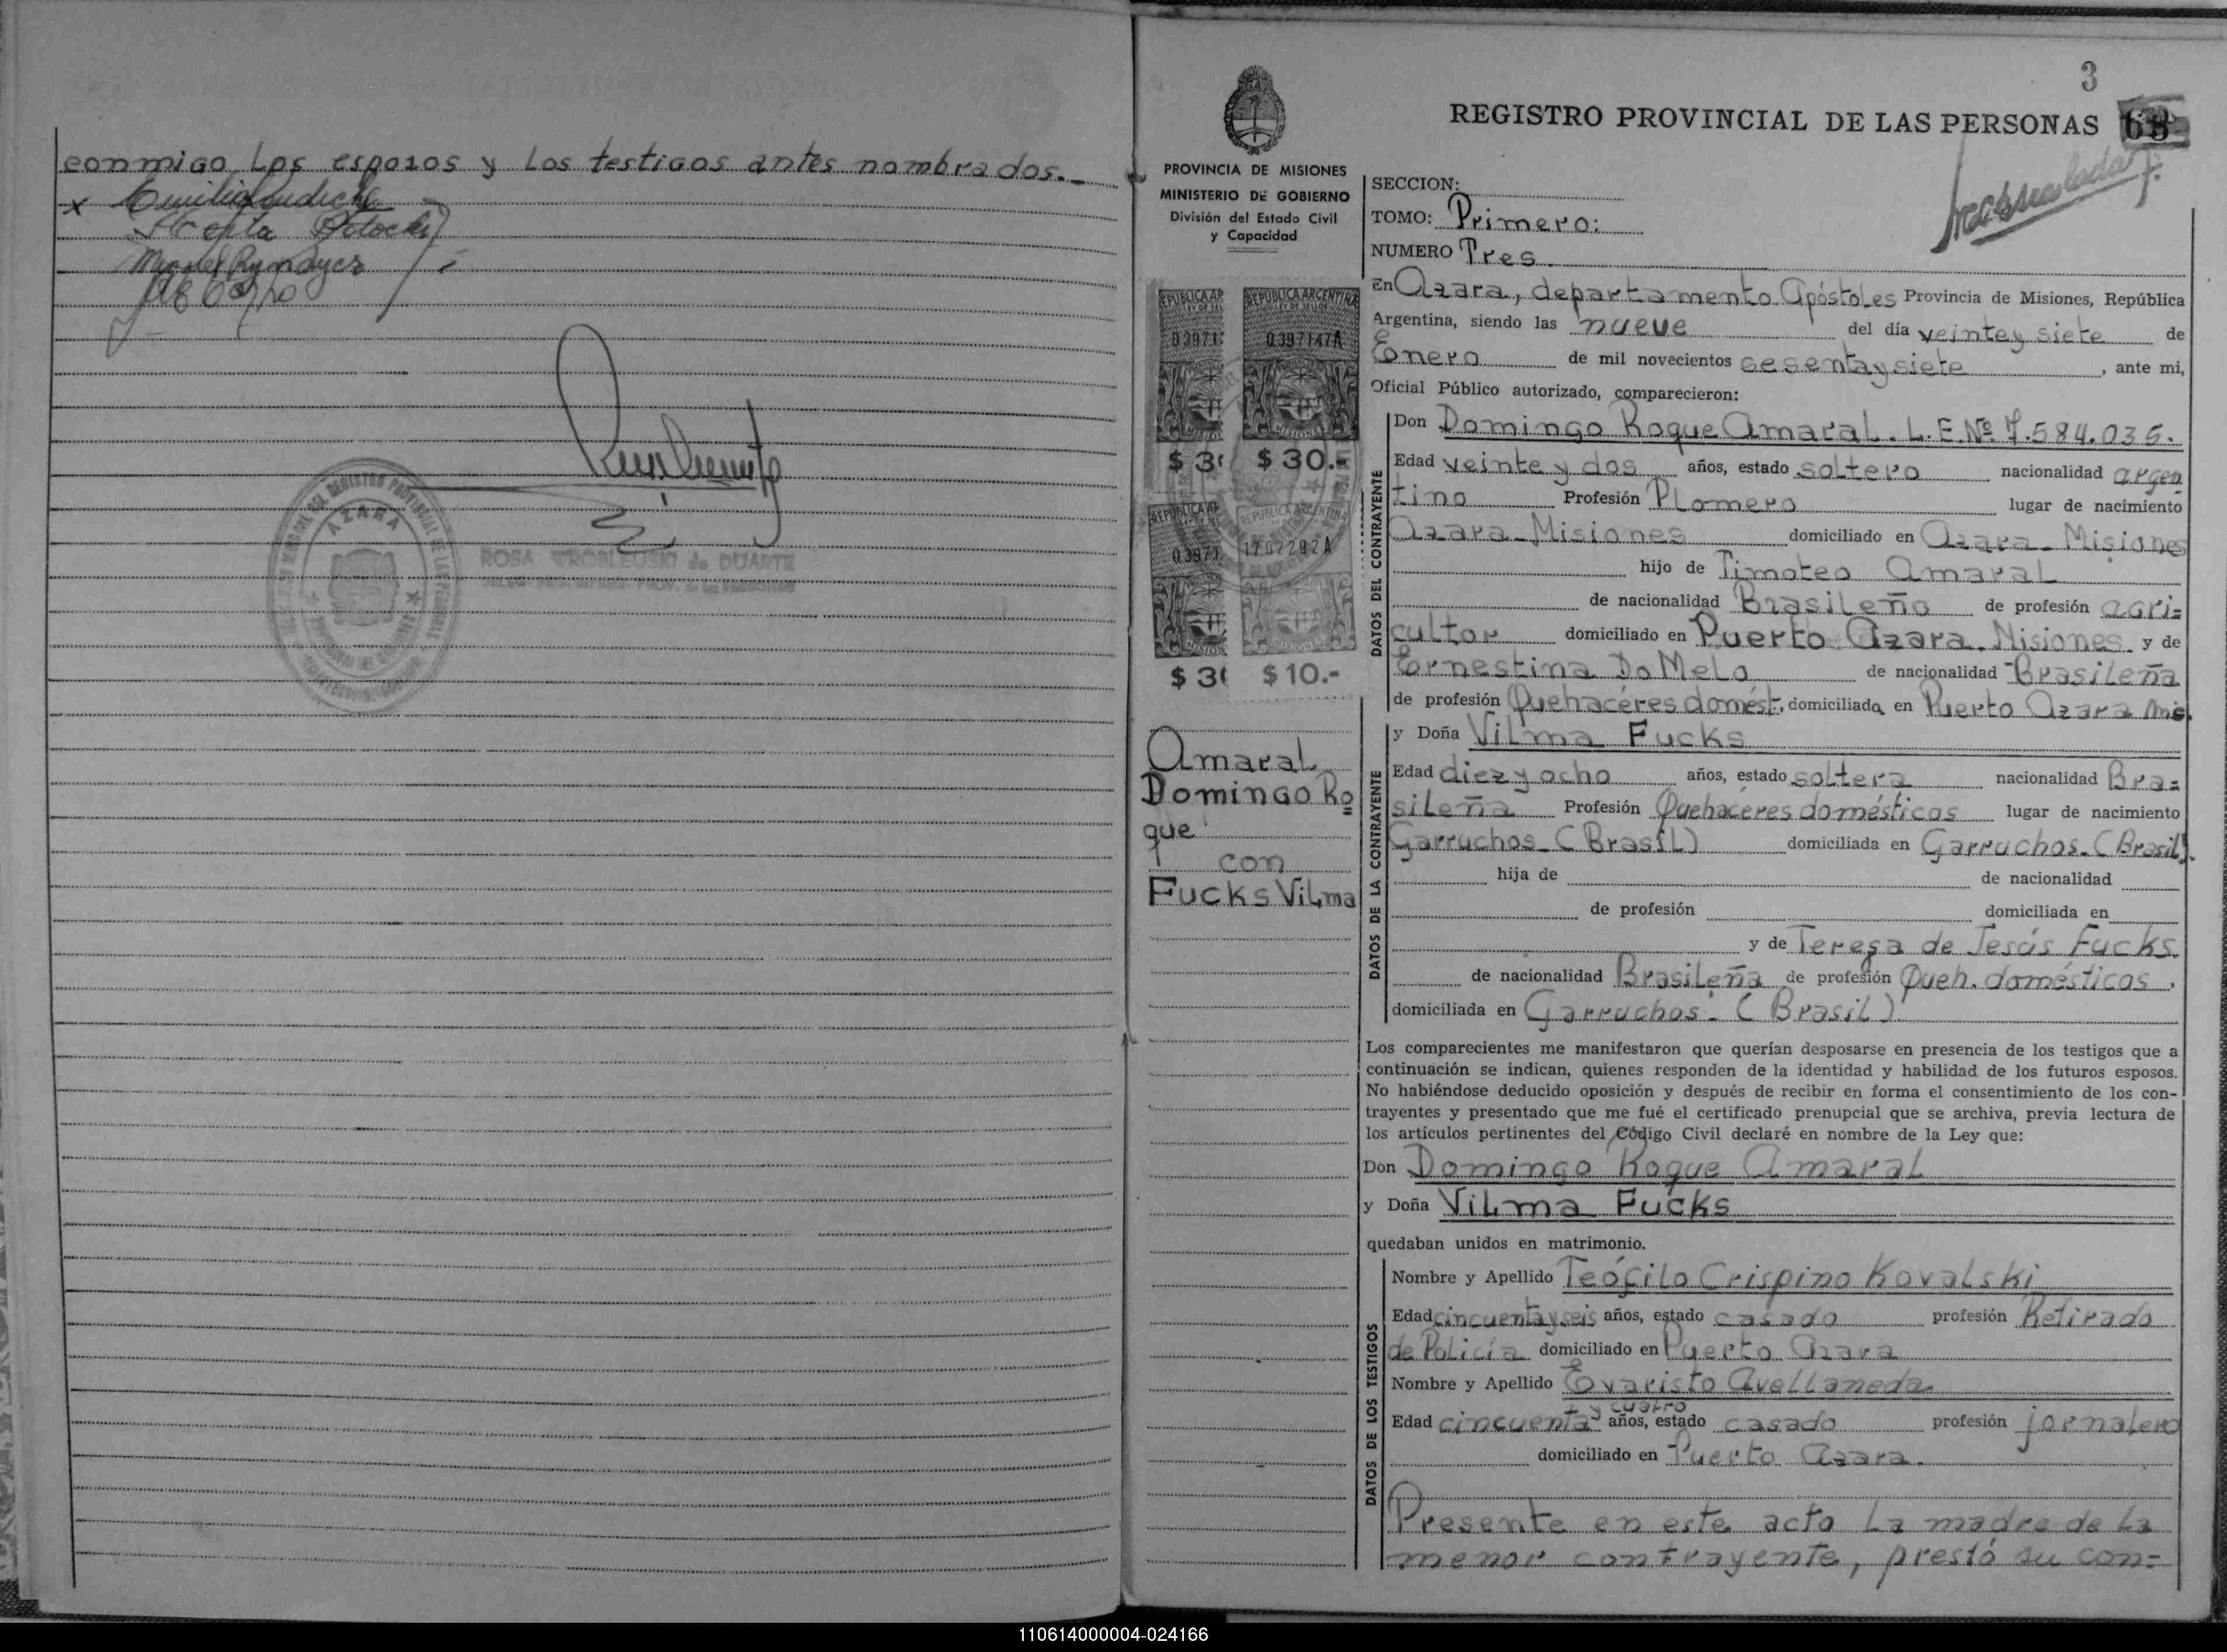 conmigo Los esposos y Los testigos antes nombrados._
x
Miguel
AZARA
ROSA WROBLEUSKI de DUARTE
3
REGISTRO PROVINCIAL DE LAS PERSONAS 68
PROVINCIA DE MISIONES
MINISTERIO DE GOBIERNO
División del Estado Civil
y Capacidad
SECCION:
TOMO: Primero:
NUMERO Tres.
En Azara, departamento Apóstoles Provincia de Misiones, República
Argentina, siendo las nueve del día veinte y siete de
Enero de mil novecientos sesenta y siete, ante mi,
Oficial Público autorizado, comparecieron:
DATOS DEL CONTRAYENTE
Don Domingo Roque Amaral. L.E. Nº 7.584.035.
Edad veinte y dos años, estado soltero nacionalidad argen
tino Profesión Plomero lugar de nacimiento
Azara-Misiones domiciliado en Azara-Misiones
hijo de Timoteo Amaral
de nacionalidad Brasileño de profesión agri=
cultor domiciliado en Puerto Azara. Misiones y de
Ernestina Do Melo de nacionalidad Brasileña
de profesión Quehacéres domést. domiciliada en Puerto Azara Mis.
REPUBLICA AR
03971
$ 3
REPUBLICA ARGENTINA
0397147A
$ 30.-
REPUBLICA AR
03971
$ 3
REPUBLICA ARGENTINA
1702292A
$ 10.-
Amaral
Domingo Ro
que
con
Fucks Vilma
DATOS DE LA CONTRAYENTE
y Doña Vilma Fucks
Edad diez y ocho años, estado soltera nacionalidad Bra=
sileña Profesión Quehacéres domésticos lugar de nacimiento
Garruchos-(Brasil) domiciliada en Garruchos.(Brasil).
hija de de nacionalidad
de profesión domiciliada en
y de Teresa de Jesús Fucks
de nacionalidad Brasileña de profesión Queh. domésticos.
domiciliada en Garruchos. (Brasil)
Los comparecientes me manifestaron que querían desposarse en presencia de los testigos que a
continuación se indican, quienes responden de la identidad y habilidad de los futuros esposos.
No habiéndose deducido oposición y después de recibir en forma el consentimiento de los con-
trayentes y presentado que me fué el certificado prenupcial que se archiva, previa lectura de
los artículos pertinentes del Código Civil declaré en nombre de la Ley que:
Don Domingo Roque Amaral
y Doña Vilma Fucks
quedaban unidos en matrimonio.
DATOS DE LOS TESTIGOS
Nombre y Apellido Teófilo Crispino Kovalski
Edad cincuenta y seis años, estado casado profesión Retirado
de Policía domiciliado en Puerto Azara
Nombre y Apellido Evaristo Avellaneda
y cuatro
Edad cincuenta años, estado casado profesión jornalero
domiciliado en Puerto Azara.
Presente en este acto La madre de La
menor contrayente, prestó su con=
110614000004-024166